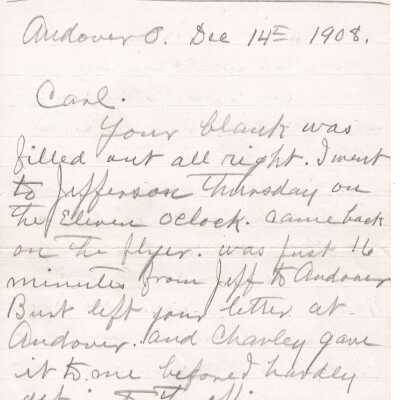 Andover O. Dec 14th 1908.
Carl.
Your blank was
filled out all right. I went
to Jefferson Thursday on
the Eleven oclock. came back
on the flyer. was just 16
minutes from Jeff to Andover
Burt left your letter at
Andover. and Charley gave
it to me before I hardly